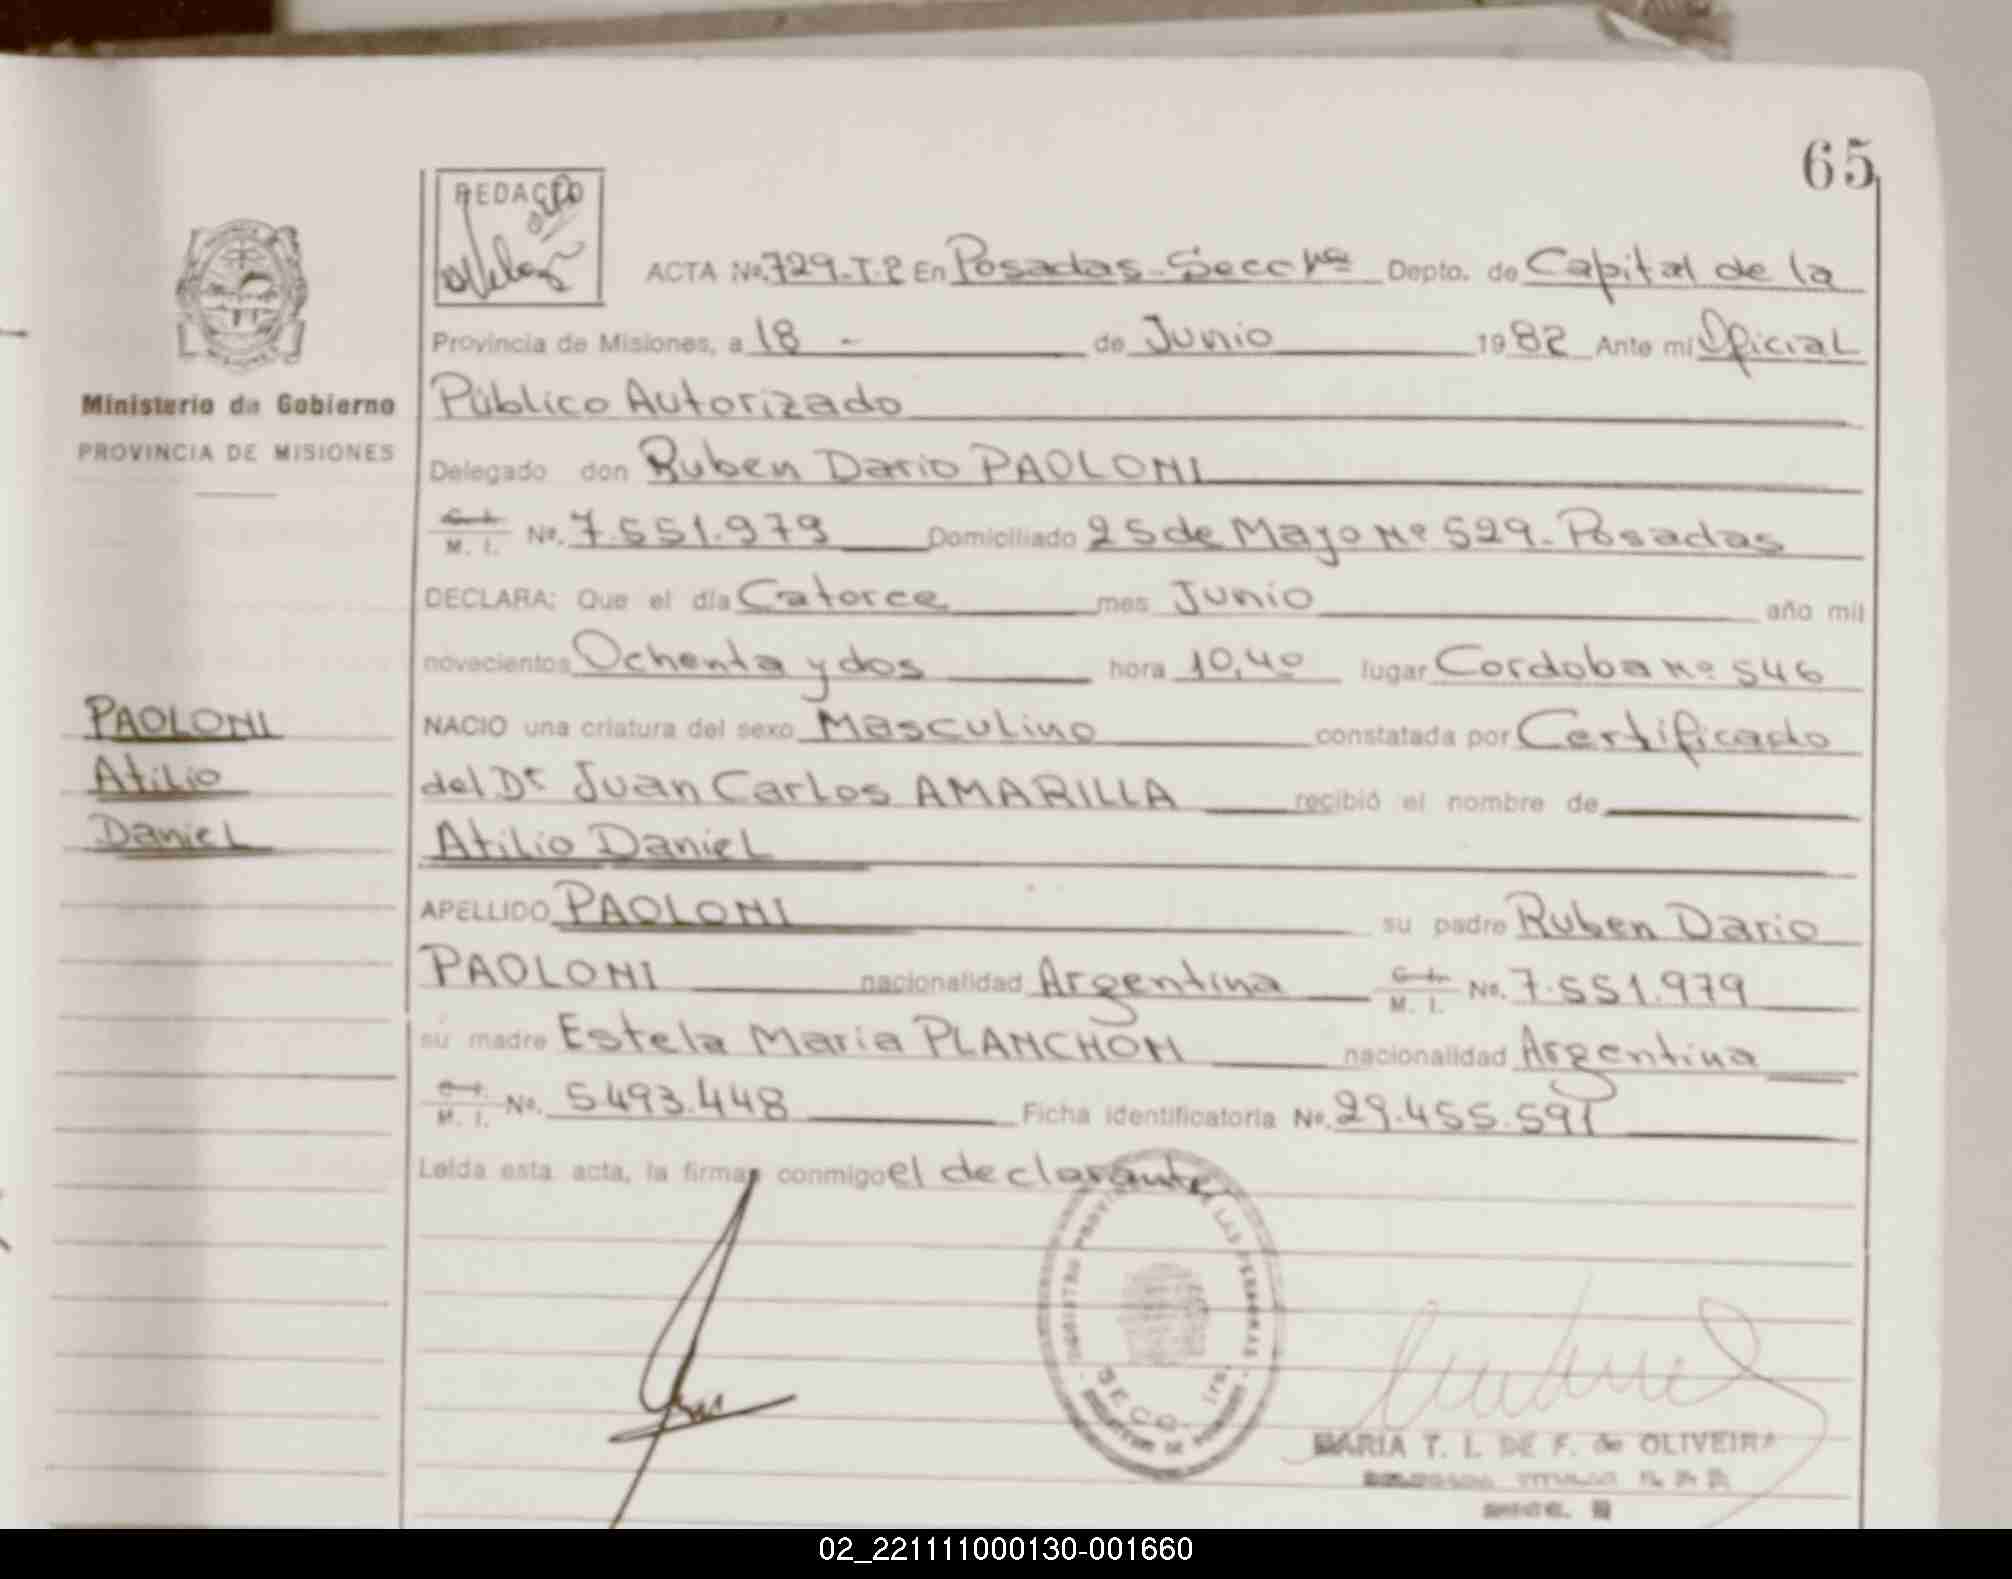 65
REDACTO
ACTA No. 729-T-2 En Posadas-Secc 1ra Depto. de Capital de la
Provincia de Misiones, a 18 - de Junio 1982 Ante mi Oficial
Ministerio de Gobierno
Público Autorizado
PROVINCIA DE MISIONES
Delegado don Ruben Dario PAOLONI
C. I. M. I. No. 7.551.979 Domiciliado 25 de Mayo Nº 529-Posadas
DECLARA: Que el día Catorce mes Junio año mil
novecientos Ochenta y dos hora 10,40 lugar Cordoba Nº 546
PAOLONI
NACIO una criatura del sexo Masculino constatada por Certificado
Atilio
del Dr Juan Carlos AMARILLA recibió el nombre de
Daniel
Atilio Daniel
APELLIDO PAOLONI su padre Ruben Dario
PAOLONI nacionalidad Argentina C. I. M. I. No. 7.551.979
su madre Estela Maria PLANCHON nacionalidad Argentina
C. I. M. I. No. 5493.448 Ficha identificatoria No. 29.455.591
Leída esta acta, la firman conmigo el declarante
REGISTRO PROVINCIAL DE LAS PERSONAS
SECC. 1ra.
MARIA T. I. DE F. de OLIVEIRA
02_221111000130-001660